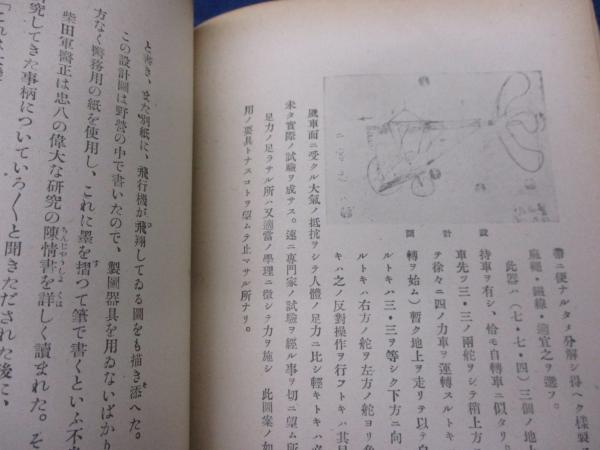 帶ニ便ナルタメ分解シ得ヘク樣製
麻繩・鐵線・適宜之ヲ選フ。
此器ハ(七・七・四)三個ノ地上
持車ヲ有シ、恰モ自轉車ニ似タリ
車先ヲ三・三ノ兩舵ヲシテ稍上方
テ徐々ニ四ノ力車ヲ運轉スルトキ
轉ヲ始ム)暫ク地上ヲ走リテ以テ自
ルトキハ三・三ヲ等シク下方ニ向
ルトキハ右方ノ舵ヲ左方ノ舵ヨリ
キハ之ノ反對操作ヲ行フトキハ其
設計圖
風車面ニ受クル大氣ノ抵抗ヲシテ人體ノ足力ニ比シ輕キトキハ
未タ實際ノ試驗ヲ成サス。速ニ專門家ノ試驗ヲ經ル事ヲ切ニ望ム所
足力ノ足ラサル所ハ又適當ノ學理ニ徵シテ力ヲ施シ 此圖案ノ如
用ノ要具トナスコトヲ望ムテ止マサル所ナリ。
と書き、また別紙に、飛行機が飛翔してゐる圖をも描き添へた。
この設計圖は野營の中で書いたので、製圖器具を用ゐないばかり
方なく醫務用の紙を使用し、これに墨を摺つて筆で書くといふ不
柴田軍醫正は忠八の偉大な研究の陳情書を詳しく讀まれた。そ
究してきた事柄についていろ〱と聞きだされた後に、